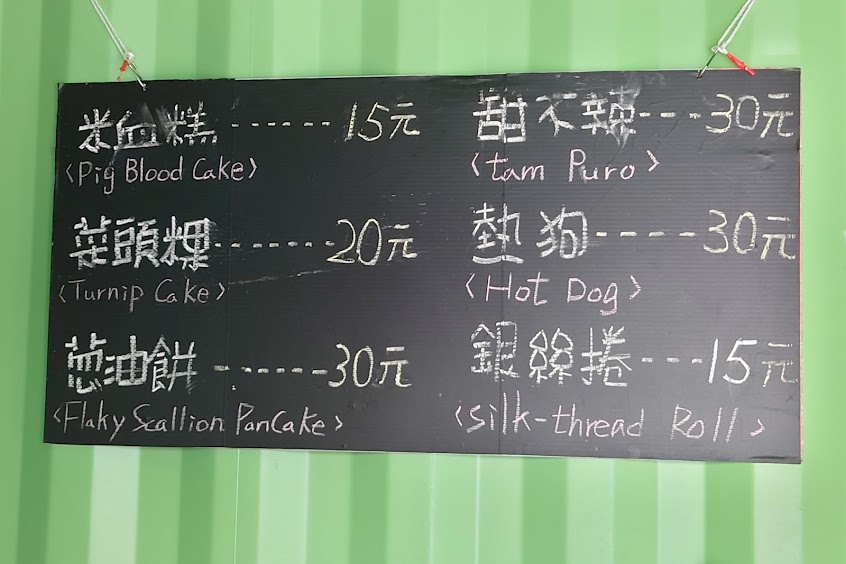 米血糕------15元
<Pig Blood Cake>
菜頭粿-------20元
<Turnip Cake>
蔥油餅------30元
<Flaky Scallion PanCake>
甜不辣---30元
<tam Puro>
熱狗-----30元
<Hot Dog>
銀絲捲---15元
<silk-thread Roll>